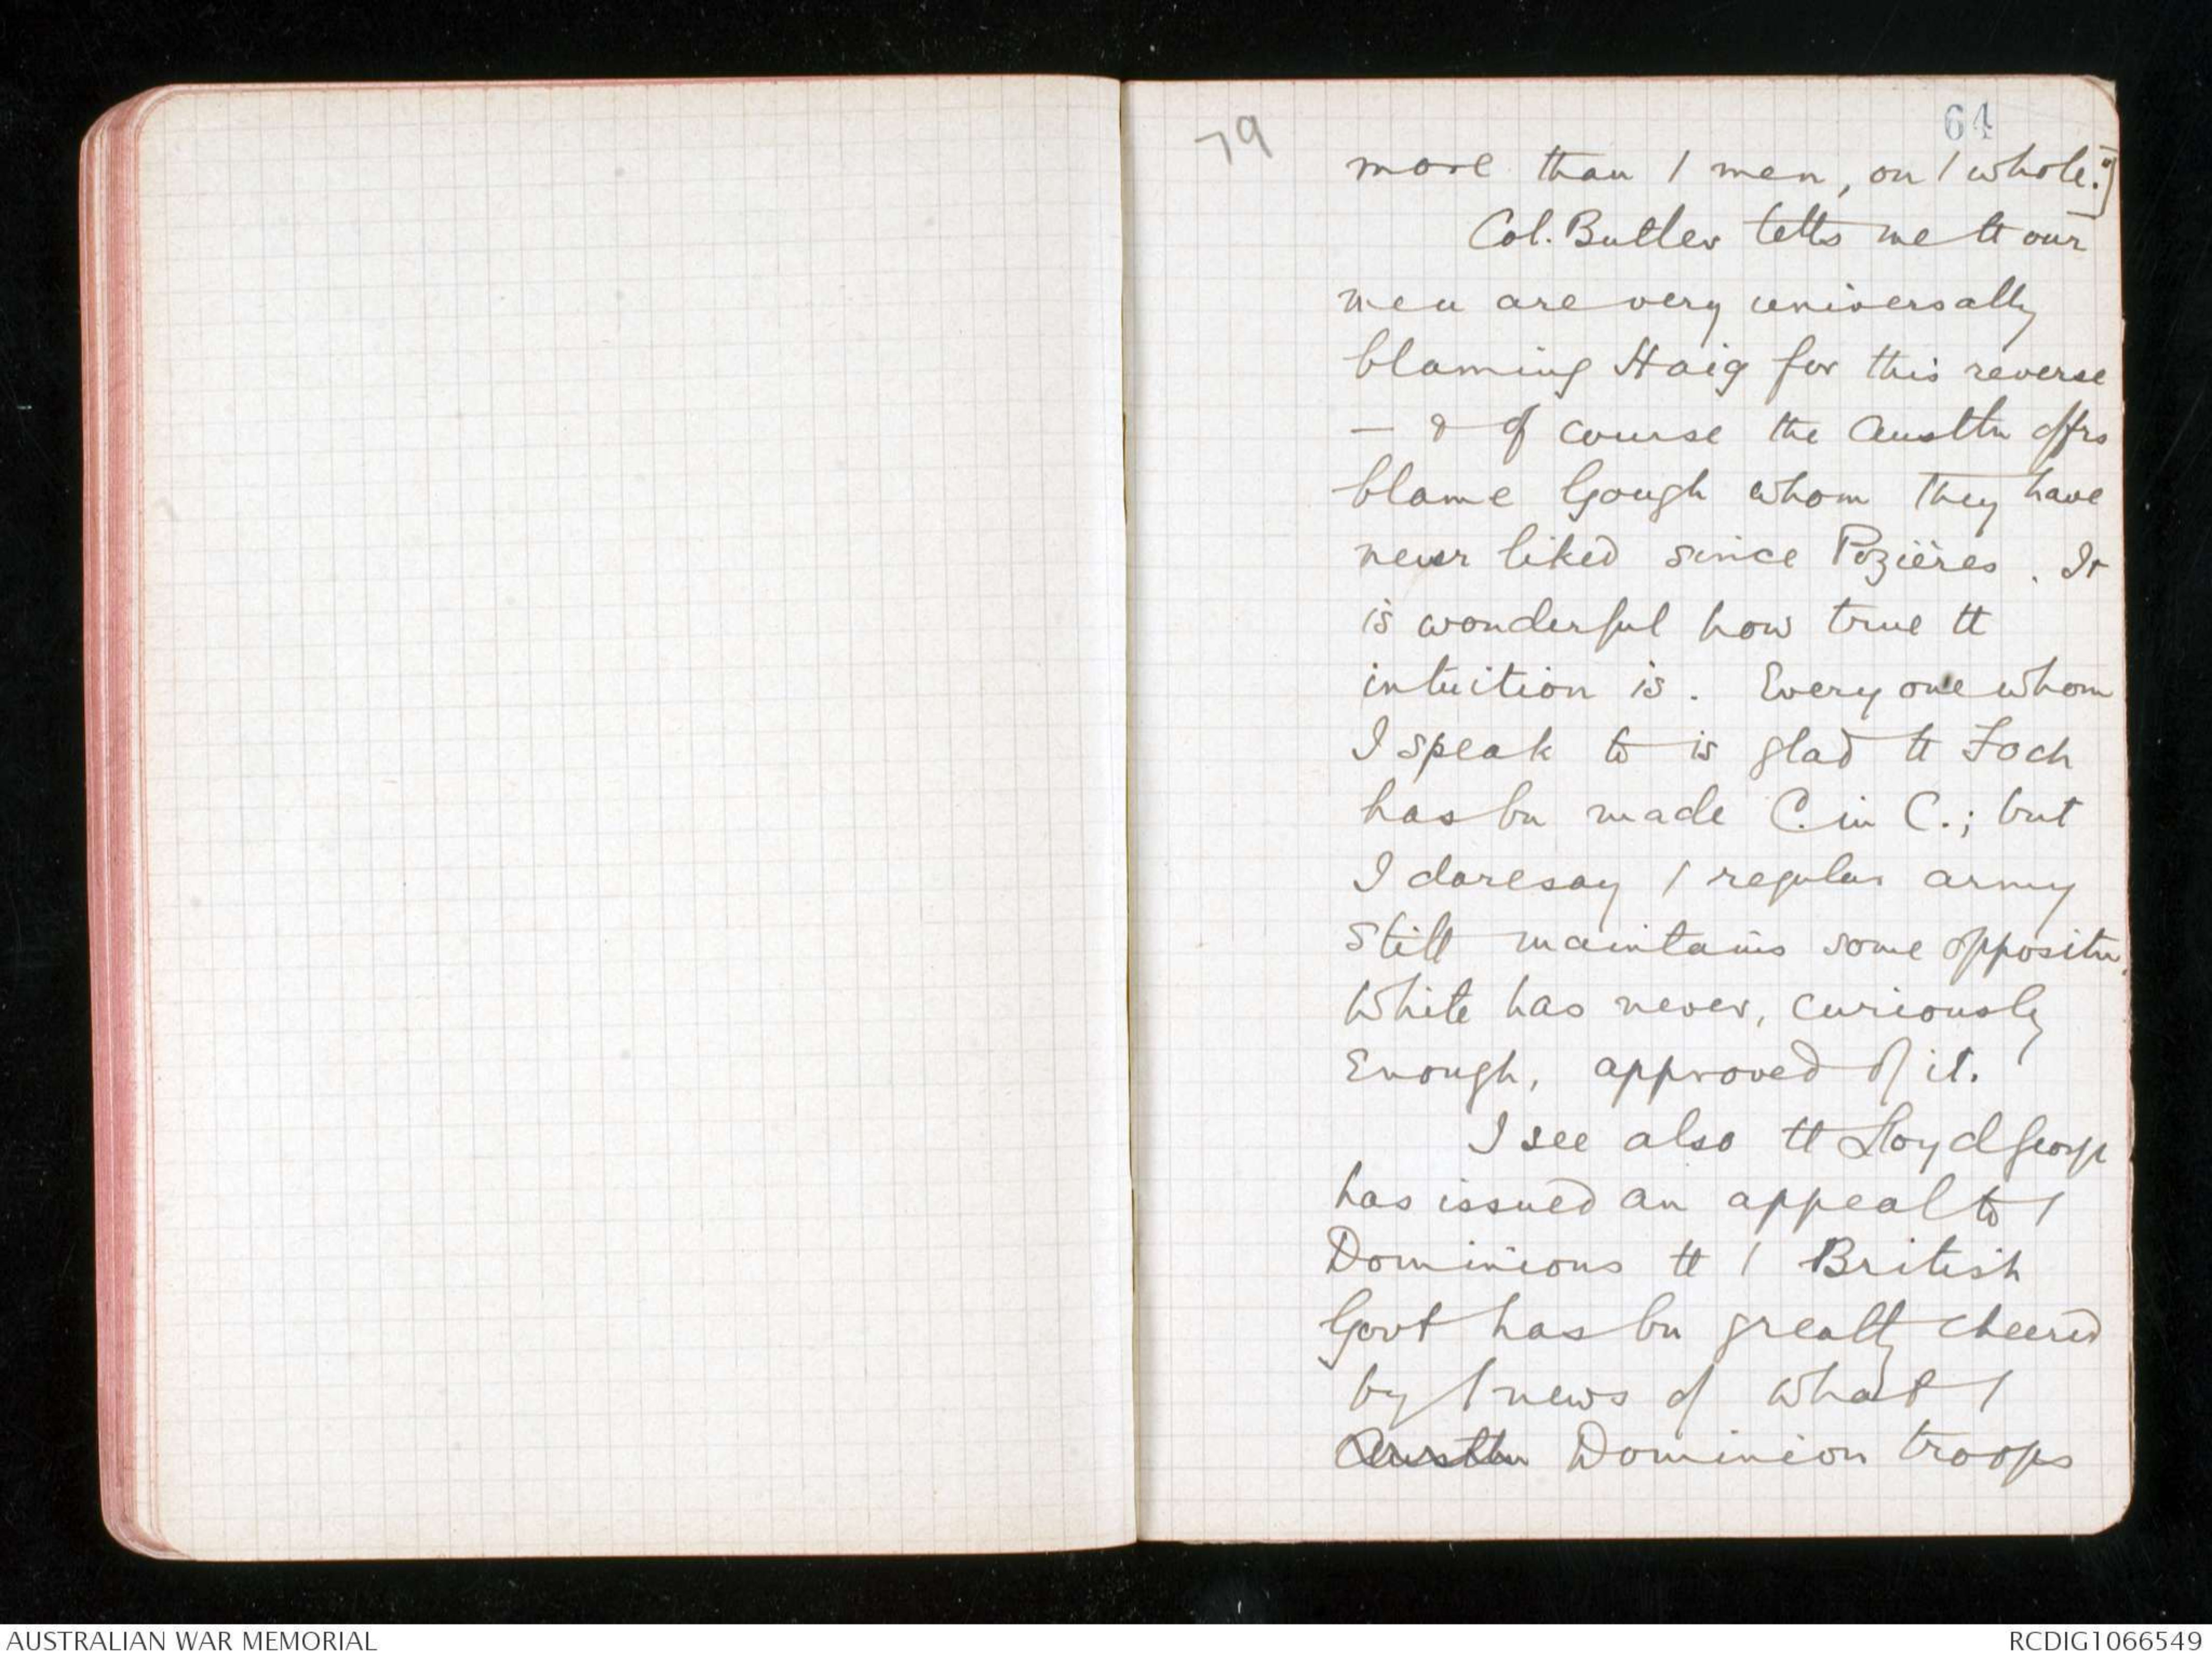 79
64
more than / men, on / whole."]
Col. Butler tells me tt our
men are very universally
blaming Haig for this reverse
— & of course the Austln offrs
blame Gough whom they have
never liked since Pozières. It
is wonderful how true tt
intuition is. Every one whom
I speak to is glad tt Foch
has bn made C. in C.; but
I daresay / regular army
still maintains some oppositn.
White has never, curiously
enough, approved of it.
I see also tt Lloyd George
has issued an appeal to /
Dominions tt / British
Govt has bn greatly cheered
by / news of what /
Austln Dominion troops
AUSTRALIAN WAR MEMORIAL
RCDIG1066549